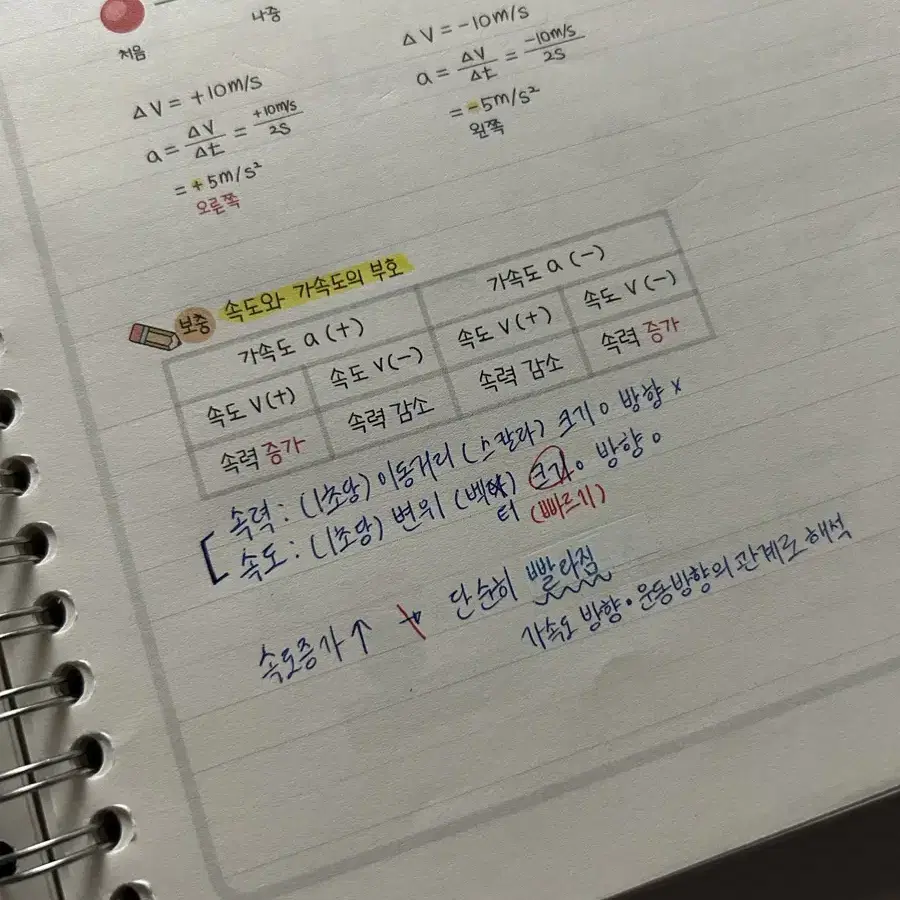 처음
나중
ΔV = +10m/s
a = ΔV/Δt = +10m/s/2s
= +5m/s²
오른쪽
ΔV = -10m/s
a = ΔV/Δt = -10m/s/2s
= -5m/s²
왼쪽
보충 속도와 가속도의 부호
가속도 a (+) 가속도 a (-)
속도 V(+) 속도 V(-) 속도 V(+) 속도 V(-)
속력 증가 속력 감소 속력 감소 속력 증가
속력 : (1초당) 이동거리 (스칼라) 크기 o 방향 x
속도 : (1초당) 변위 (벡터) 크기 o 방향 o
(빠르기)
속도증가↑ → 단순히 빨라짐
가속도 방향·운동방향의 관계로 해석